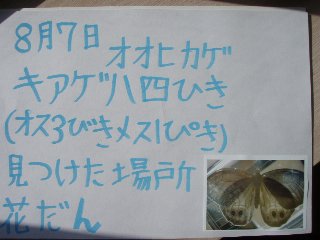 8月7日 オオヒカゲ
キアゲハ四ひき
(オス3びきメス1ぴき)
見つけた場所
花だん